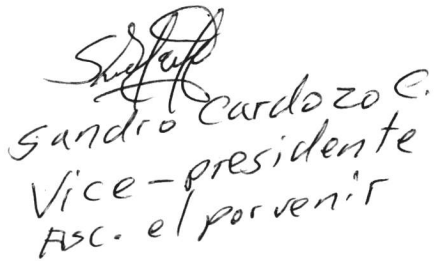 Sandro Cardozo C.
Vice-presidente
Asc. el porvenir